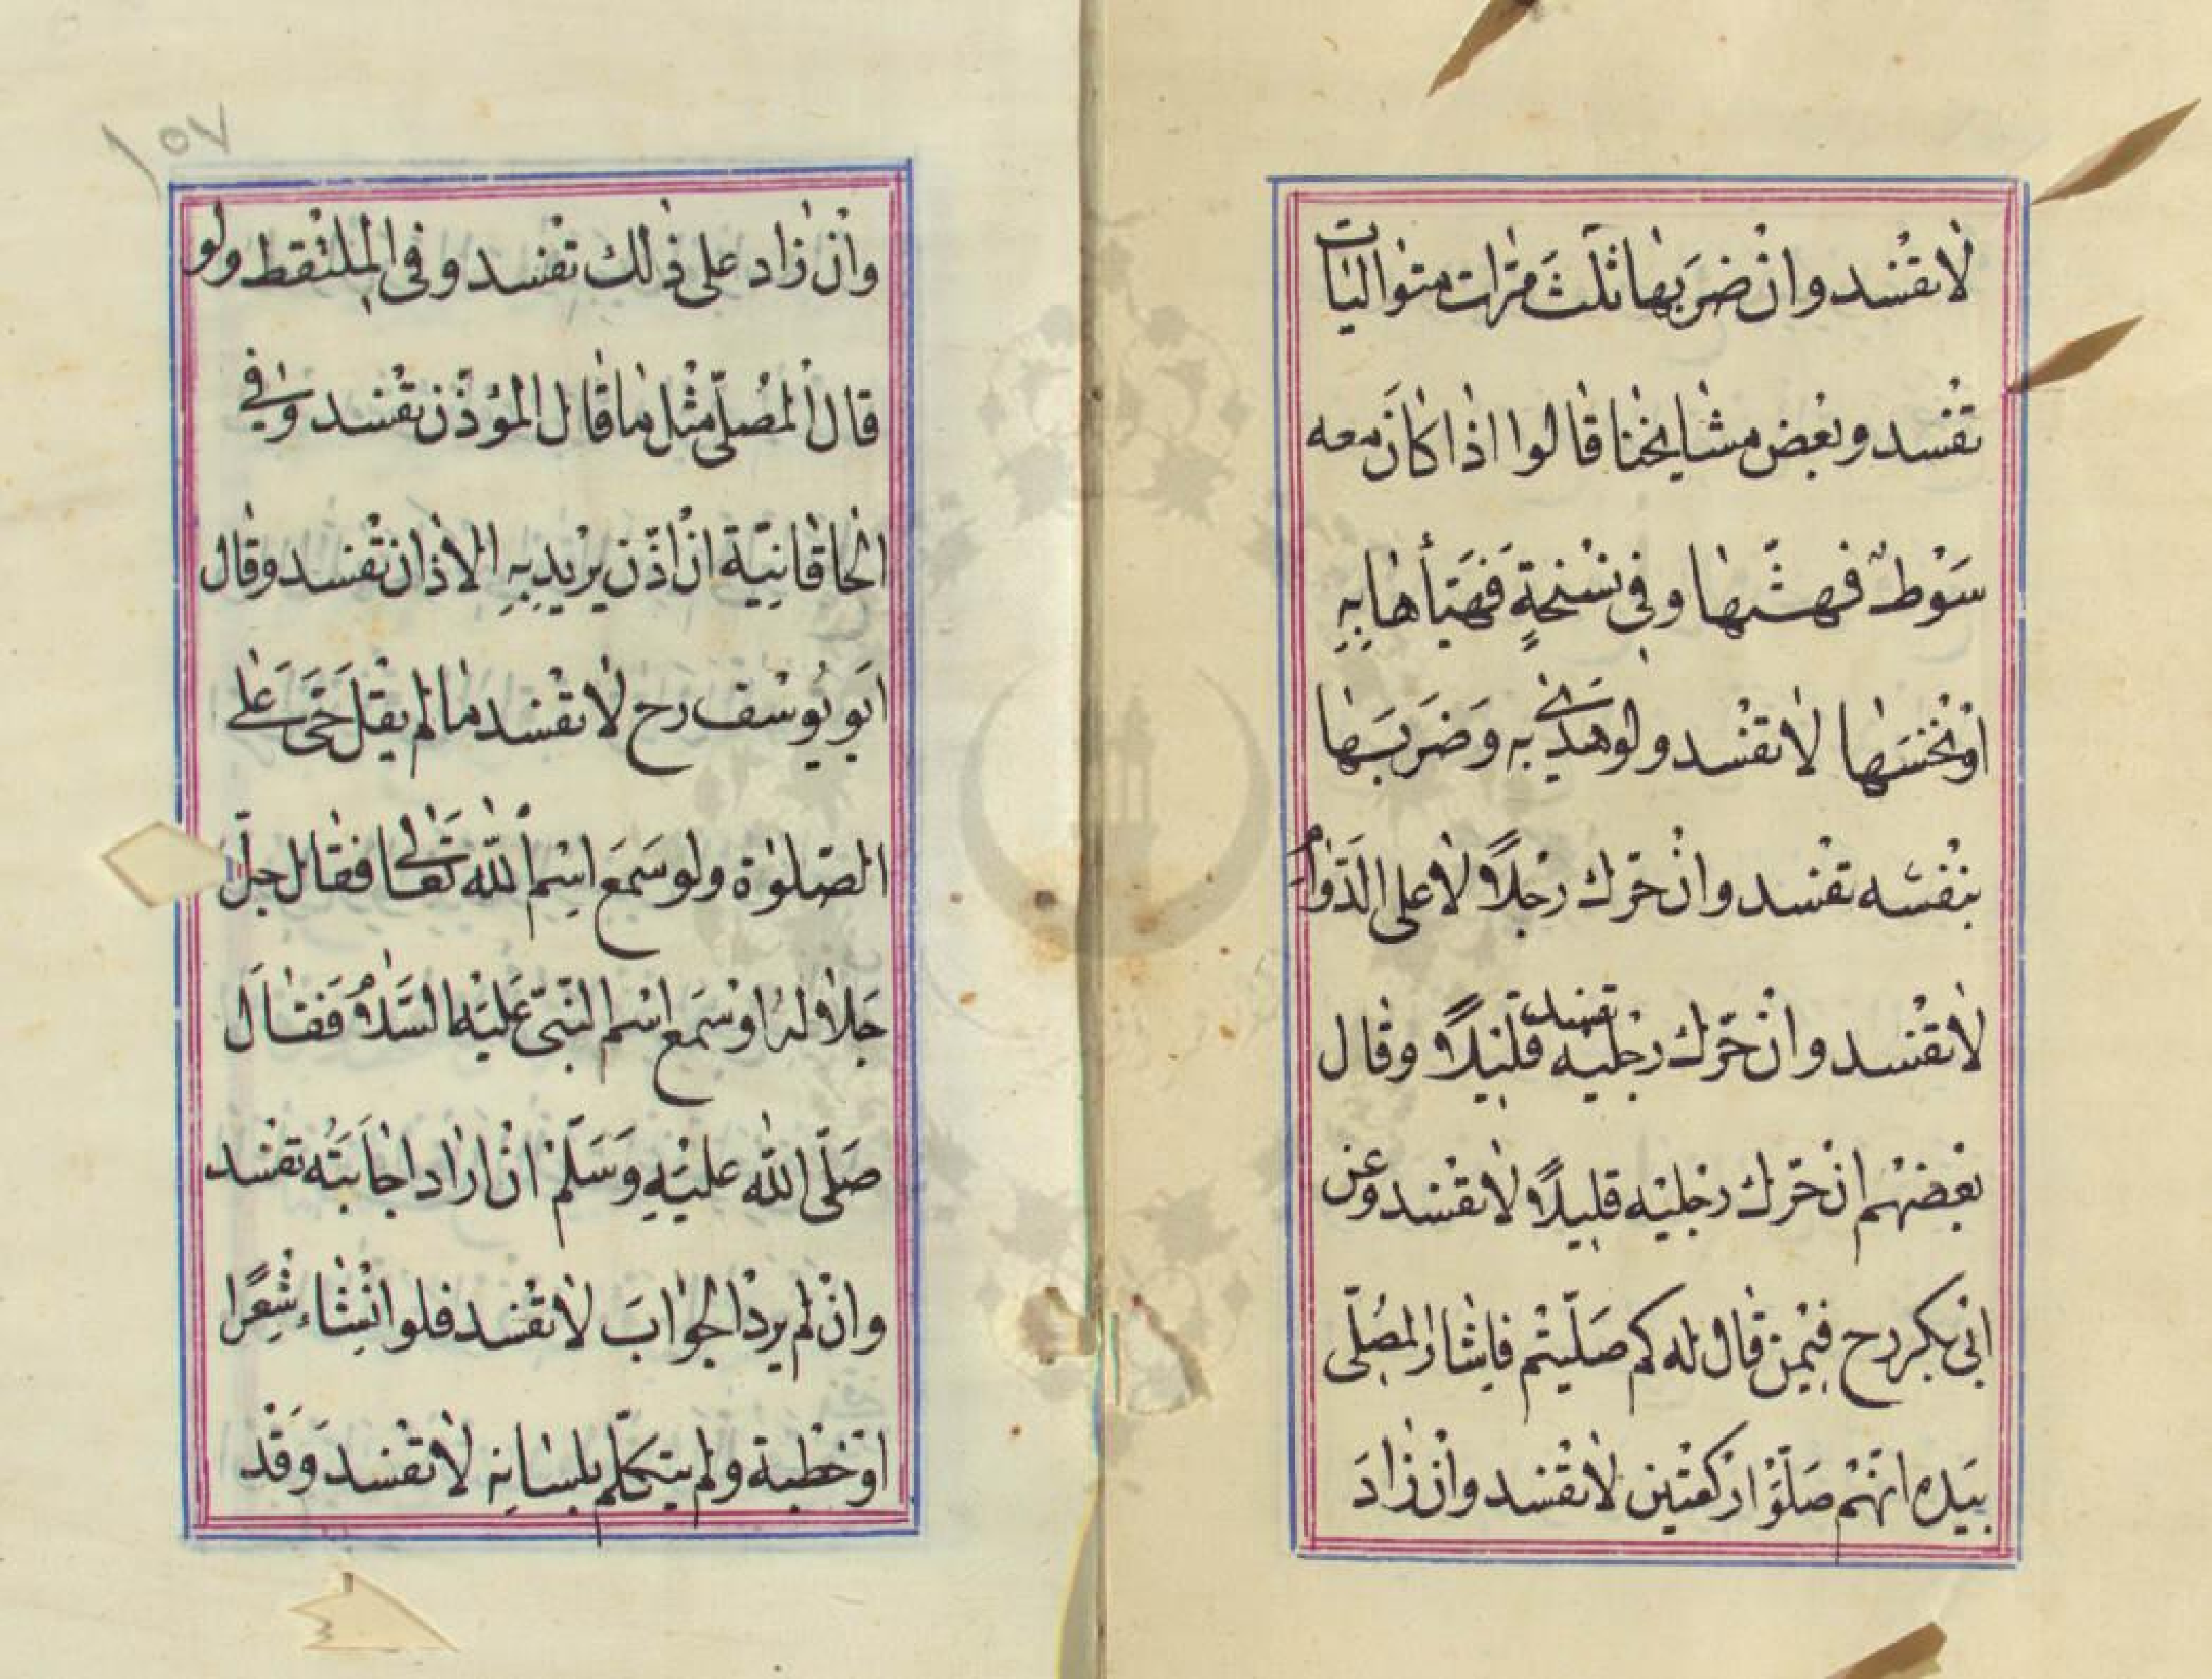 لا تفسد وان ضربها ثلث مرّات متواليات
تفسد وبعض مشايخنا قالوا اذا كان معه
سَوْطٌ فهشّها وفى نسْخةٍ فهَيّأها بِهِ
اوْ نخسَها لا تفسد ولو هدىٰ به وَضَرَبَها
بنفْسه تفسد وانْ حرّك رِجْلاً لا على الدّوامِ
لا تفْسد وانْ حرّك رجْليْه تفسد قليلاً وقال
بعْضهُم انْ حرّك رجْليْه قليلاً لا تفْسد وعن
ابى بكر رح فيْمن قال له كم صَلّيْتم فاشار المصُلّى
بيَده انّهُم صَلّوْا ركْعتين لا تفْسد وانْ زادَ
١٥٧
وانْ زاد على ذٰلك تفْسد وفى الملْتقط ولو
قال المصُلّى مثْل ما قال المؤذّن تفْسد وفى
الخاقانِيّة انْ اذّن يرْيد بِهِ الاذان تفْسد وقال
ابَو يُوسُف رح لا تفْسد ما لم يقلْ حَىَّ عَلى
الصّلوٰة ولو سَمعَ اسْم اللّٰه تعَالىٰ فقال جلّ
جَلاله اوْ سَمع اسْم النّبىّ عَليْه السَّلامُ فَقال
صَلّى اللّٰه عليْهِ وَسَلّمْ انْ اراد اجَابَتَه تفْسد
وانْ لم يردْ الجوابَ لا تفْسد فلو انْشاء شِعْرًا
اوْ خطْبة ولم يتكلّم بلسانِه لا تفْسد وَقَدْ